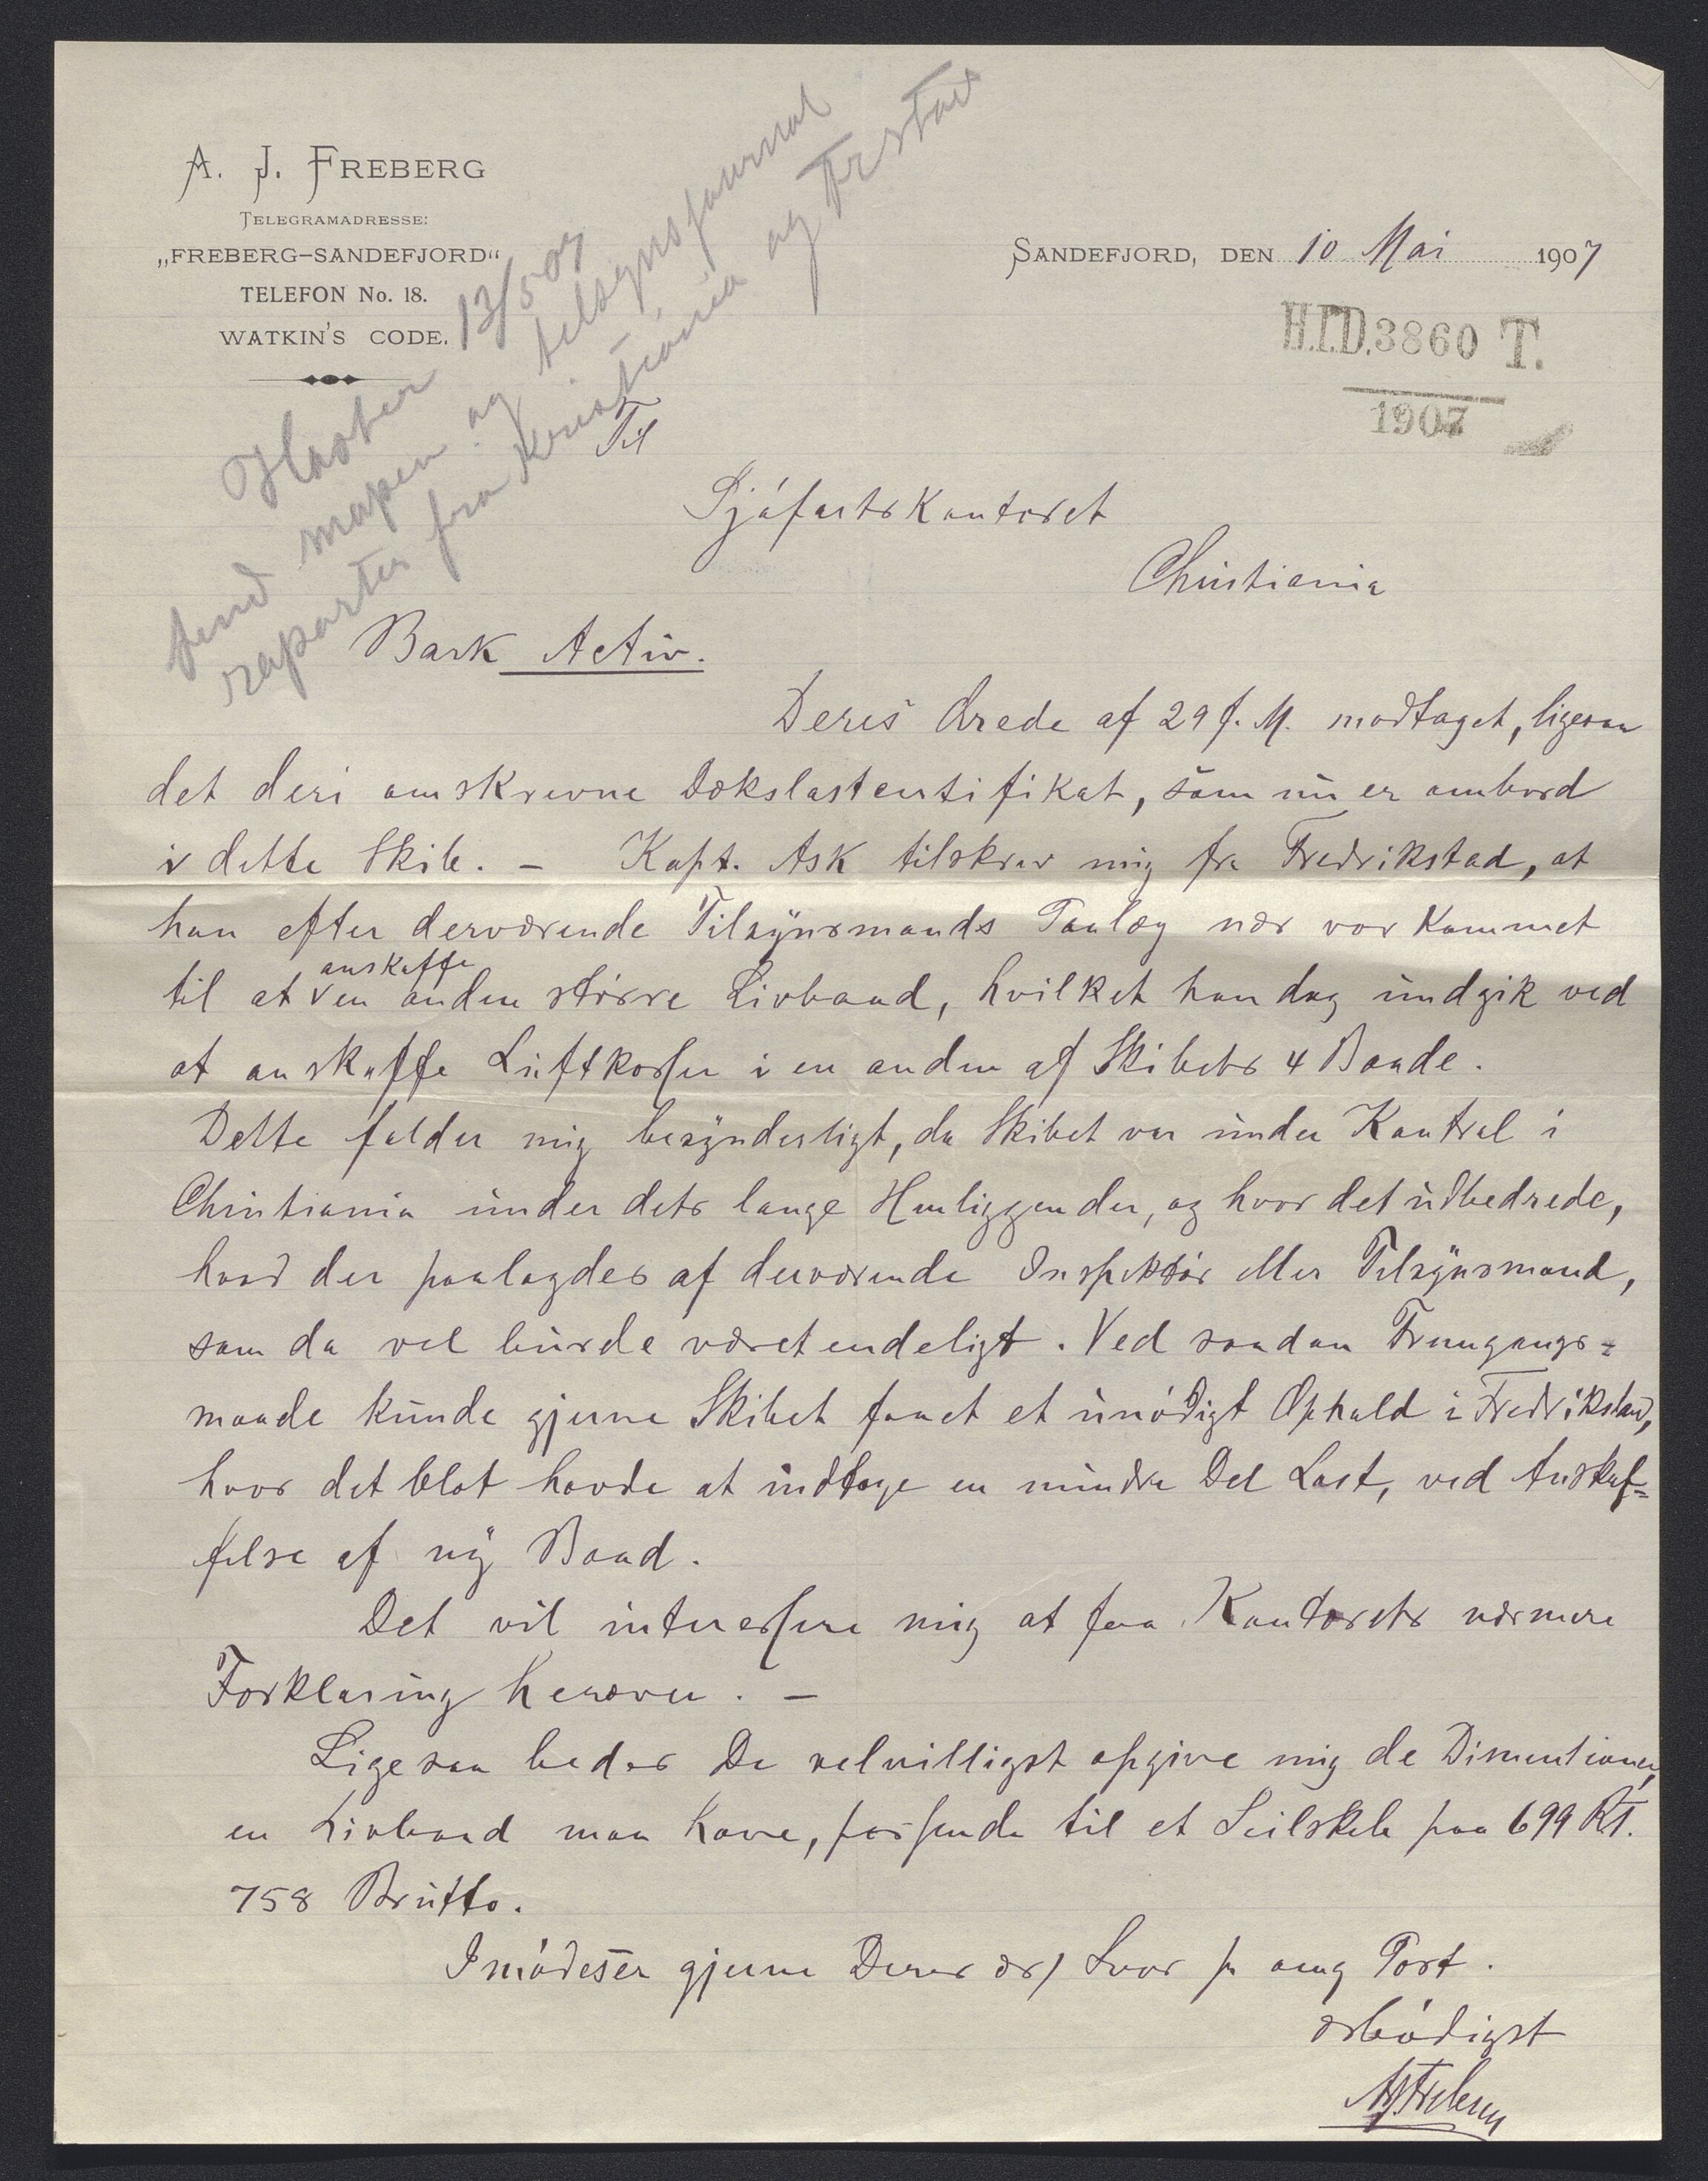 A. J. FREBERG
TELEGRAMADRESSE:
„FREBERG-SANDEFJORD“
TELEFON No. 18.
WATKIN'S CODE.
SANDEFJORD, DEN 10 Mai 1907
H.I.D. 3860 T.
1907
Haster 13/5 07
Send mapen og tilsynsjournal
raporter fra Kristiania og Frstad
Til
Sjøfartskontoret
Christiania
Bark Activ.
Deres Ærede af 29 f. M. modtaget, ligesaa
det deri omskrevne Dækslastcertifikat, som nu er ombord
i dette Skib. – Kapt. Ask tilskrev mig fra Fredrikstad, at
han efter derværende Tilsynsmands Paalæg nær var kommet
til at anskaffe en anden større Livbaad, hvilket han dog undgik ved
at anskaffe Luftkasser i en anden af Skibets 4 Baade.
Dette falder mig besynderligt, da Skibet var under Kontrol i
Christiania under dets lange Henliggenden, og hvor det udbedrede,
hvad der paalagdes af derværende Inspektør eller Tilsynsmand,
som da vel burde været endeligt. Ved saadan Fremgangs=
maade kunde gjerne Skibet faaet et unødigt Ophold i Fredrikstad,
hvor det blot havde at indtage en mindre Del Last, ved Anskaf=
felse af ny Baad.
Det vil interessere mig at faa Kontorets nærmere
Forklaring herover. –
Ligesaa bedes De velvilligst opgive mig de Dimentioner,
en Livbaad maa have, passende til et Seilskib paa 699 RT.
758 Brutto.
Imødeser gjerne Deres ær/ Svar pr omg Post.
ærbødigst
AJFreberg